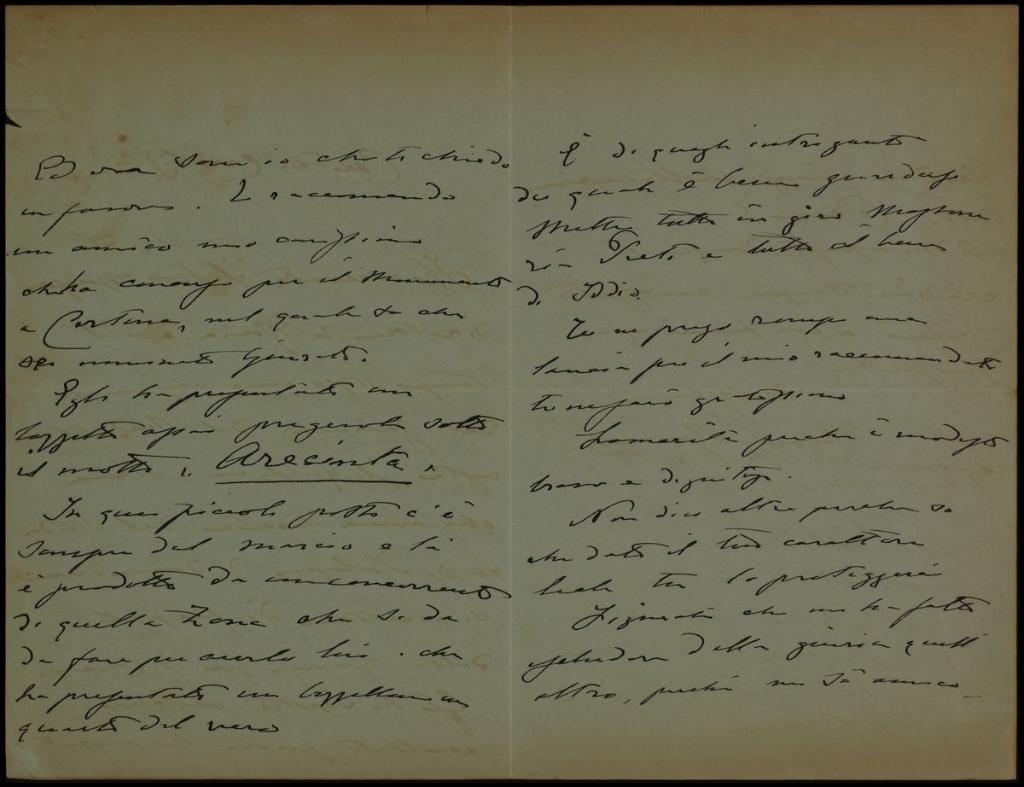 Ed ora sono io che ti chiedo
un favore. Ti raccomando
un amico mio carissimo
che ha concorso per il Monumento
a Cortona, nel quale so che
sei nominato Giurato.
Egli ha presentato un
bozzetto assai pregevole sotto
il motto "Arecinta"
In quei piccoli posti c'è
sempre del marcio e lì
è prodotto da un concorrente
di quella zona che si dà
da fare per averlo lui. che
ha presentato un bozzettone un
quarto del vero
È di quegli intriganti
da quali è bene guardarsi
Mette tutto in giro
Preti e tutto il bene
di Iddio.
Tu ne prego rompi una
lancia per il mio raccomandato
te ne sarò gratissimo
Lo merita perchè è modesto
bravo e dignitoso.
Non dico altro perchè so
che dato il tuo carattere
leale tu lo proteggerai
Figurati che mi ha fatto
escludere dalla giuria quell'
altro, perchè mi sa amico